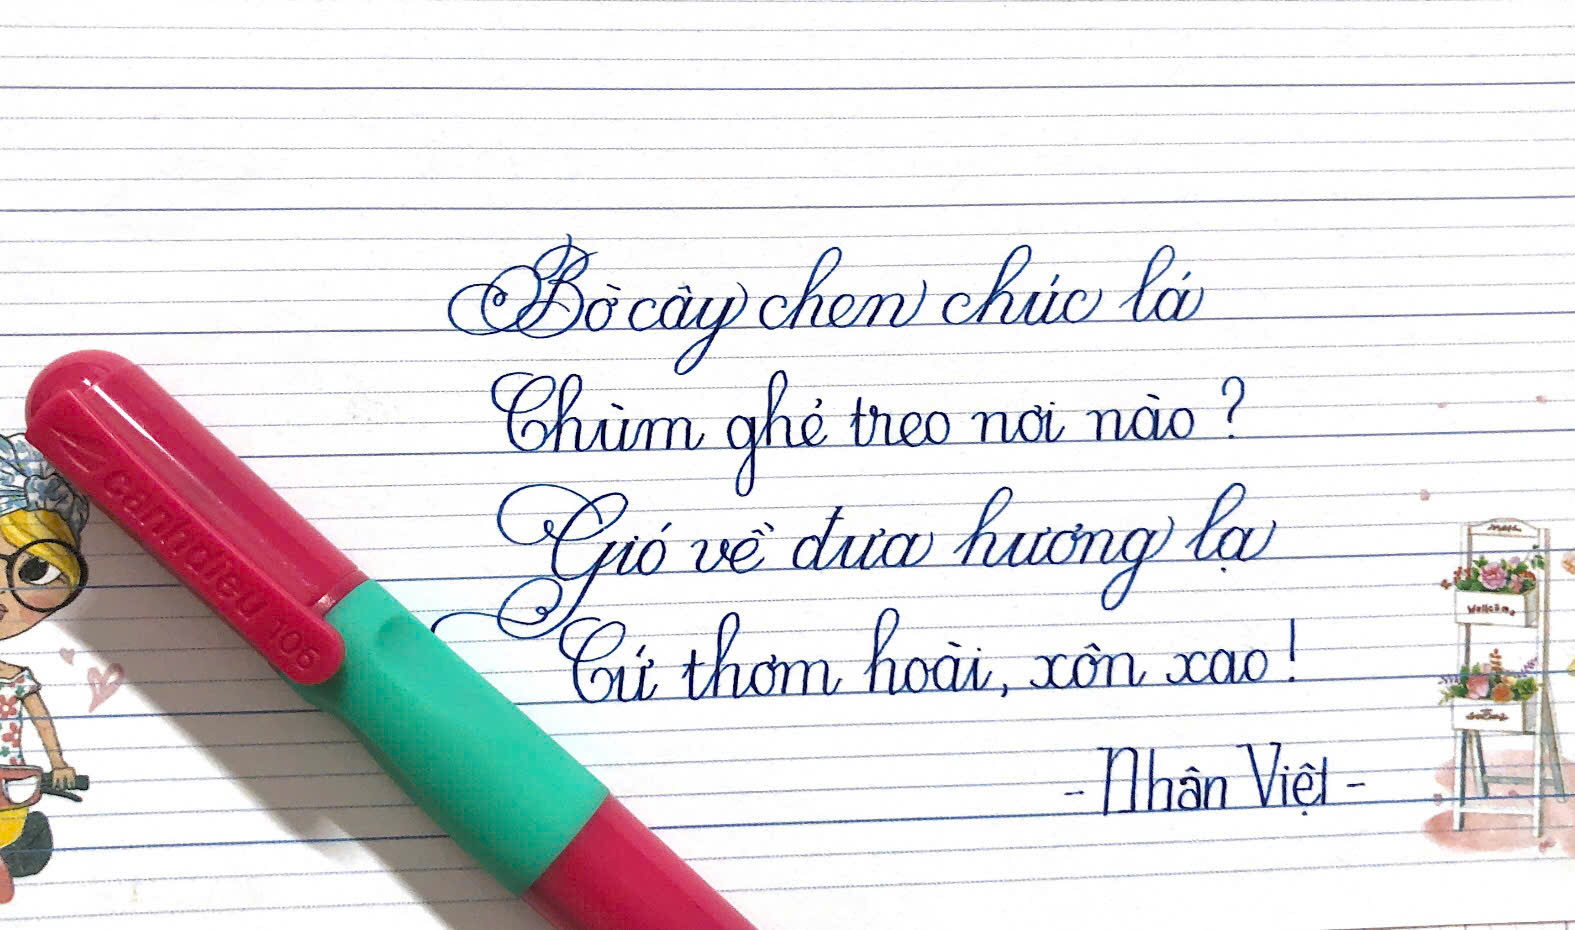 Bờ cây chen chúc lá
Chùm ghẻ treo nơi nào?
Gió về đưa hương lạ
Cứ thơm hoài, xôn xao!
- Nhân Việt -
Wellcome
105